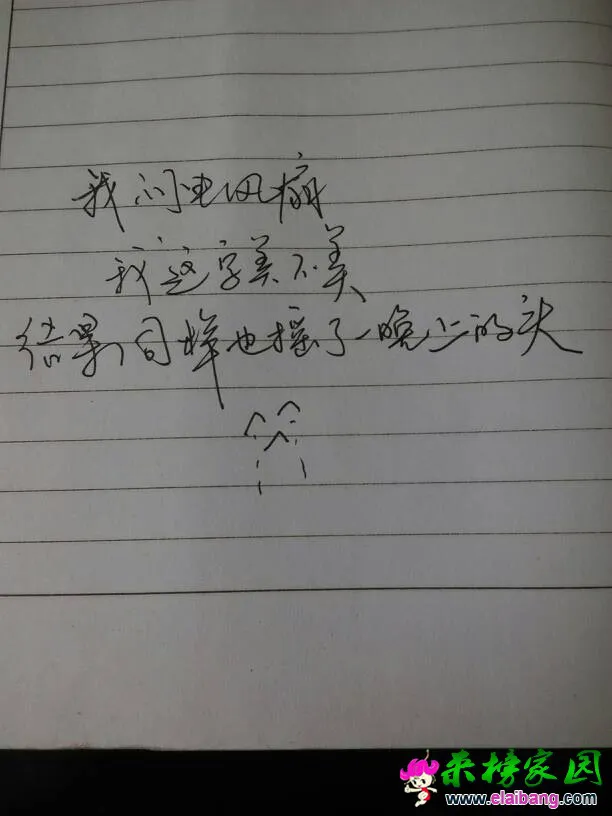 我问电风扇
我这字美不美
结果同样也摇了一晚上的头
来榜家园
www.elaibang.com